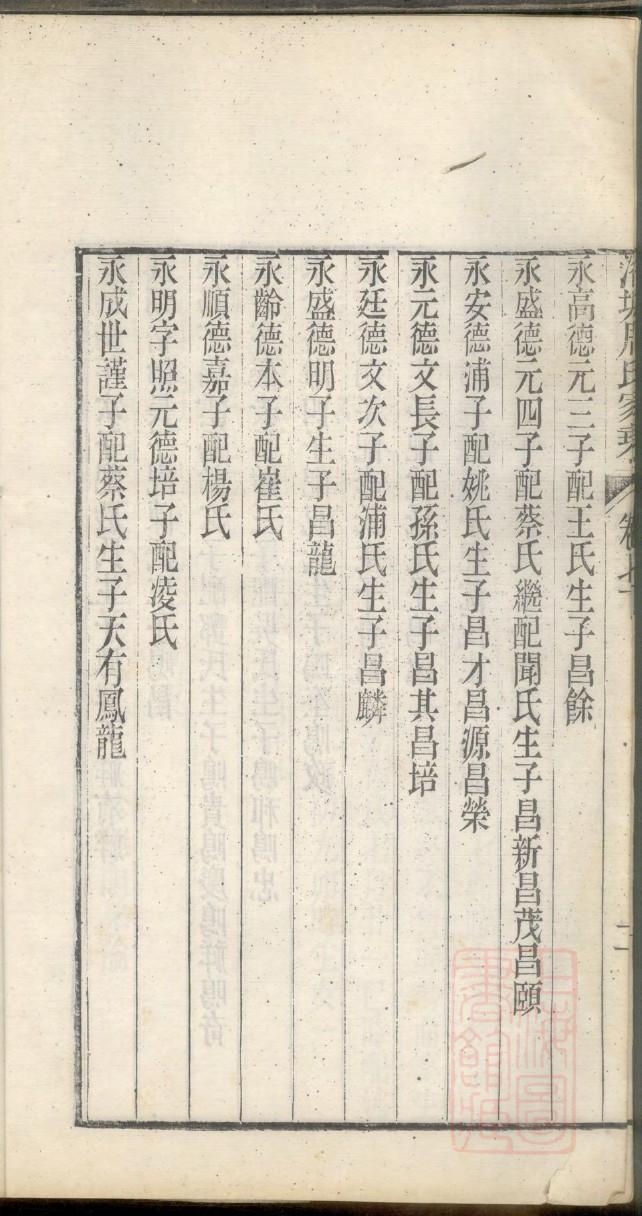 周氏家乘 卷七
永高德元三子配王氏生子昌餘
永盛德元四子配蔡氏繼配聞氏生子昌新昌茂昌頤
永安德浦子配姚氏生子昌才昌源昌榮
永元德文長子配孫氏生子昌其昌培
永廷德文次子配浦氏生子昌麟
永盛德明子生子昌龍
永齡德本子配崔氏
永順德嘉子配楊氏
永明字照元德培子配凌氏
永成世謹子配蔡氏生子天有鳳龍